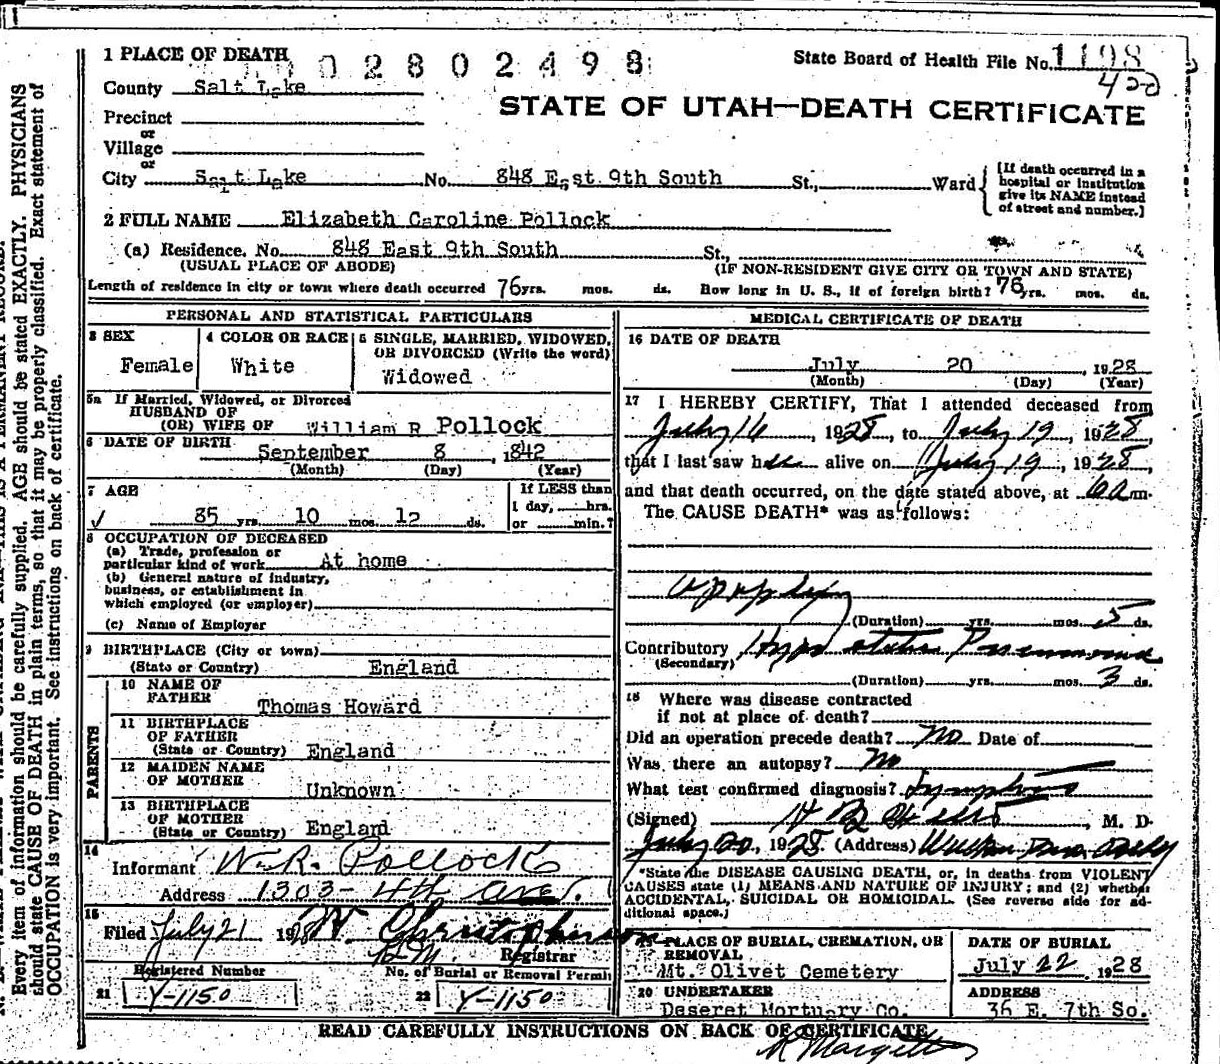 1 PLACE OF DEATH
02802498
State Board of Health File No. 1198
420
County Salt Lake
STATE OF UTAH—DEATH CERTIFICATE
Precinct
or
Village
or
City Salt Lake No. 848 East 9th South St., Ward
[If death occurred in a hospital or institution give its NAME instead of street and number.]
2 FULL NAME Elizabeth Caroline Pollock
(a) Residence. No. 848 East 9th South St.,
(USUAL PLACE OF ABODE) (IF NON-RESIDENT GIVE CITY OR TOWN AND STATE)
Length of residence in city or town where death occurred 76 yrs. mos. ds. How long in U. S., if of foreign birth? 76 yrs. mos. ds.
PERSONAL AND STATISTICAL PARTICULARS
3 SEX
Female
4 COLOR OR RACE
White
5 SINGLE, MARRIED, WIDOWED,
OR DIVORCED (Write the word)
Widowed
5a If Married, Widowed, or Divorced
HUSBAND OF
(OR) WIFE OF William R Pollock
6 DATE OF BIRTH
September 8 1842
(Month) (Day) (Year)
7 AGE
85 yrs. 10 mos. 12 ds.
If LESS than
1 day, hrs.
or min.?
8 OCCUPATION OF DECEASED
(a) Trade, profession or
particular kind of work At home
(b) General nature of industry,
business, or establishment in
which employed (or employer)
(c) Name of Employer
9 BIRTHPLACE (City or town)
(State or Country) England
PARENTS
10 NAME OF
FATHER Thomas Howard
11 BIRTHPLACE
OF FATHER
(State or Country) England
12 MAIDEN NAME
OF MOTHER Unknown
13 BIRTHPLACE
OF MOTHER
(State or Country) England
14
Informant W.R. Pollock
Address 1303 - 4th Ave.
15
Filed July 21 1928 W. Christopherson
Registrar
Registered Number
21 Y-1150
No. of Burial or Removal Permit
22 Y-1150
MEDICAL CERTIFICATE OF DEATH
16 DATE OF DEATH
July 20 , 1928
(Month) (Day) (Year)
17 I HEREBY CERTIFY, That I attended deceased from
July 16, 1928, to July 19, 1928,
that I last saw her alive on July 19, 1928,
and that death occurred, on the date stated above, at 6 a m.
The CAUSE DEATH* was as follows:
apoplexy
(Duration) yrs. mos. 5 ds.
Contributory Hypostatic Pneumonia
(Secondary)
(Duration) yrs. mos. 3 ds.
18 Where was disease contracted
if not at place of death?
Did an operation precede death? No Date of
Was there an autopsy? No
What test confirmed diagnosis? Symptoms
(Signed) , M. D.
July 20, 1928 (Address)
*State the DISEASE CAUSING DEATH, or, in deaths from VIOLENT
CAUSES state (1) MEANS AND NATURE OF INJURY; and (2) whether
ACCIDENTAL, SUICIDAL OR HOMICIDAL. (See reverse side for ad-
ditional space.)
PLACE OF BURIAL, CREMATION, OR
REMOVAL
Mt. Olivet Cemetery
DATE OF BURIAL
July 22 1928
20 UNDERTAKER
Deseret Mortuary Co.
ADDRESS
36 E. 7th So.
READ CAREFULLY INSTRUCTIONS ON BACK OF CERTIFICATE
Every item of information should be carefully supplied. AGE should be stated EXACTLY. PHYSICIANS
should state CAUSE OF DEATH in plain terms, so that it may be properly classified. Exact statement of
OCCUPATION is very important. See instructions on back of certificate.